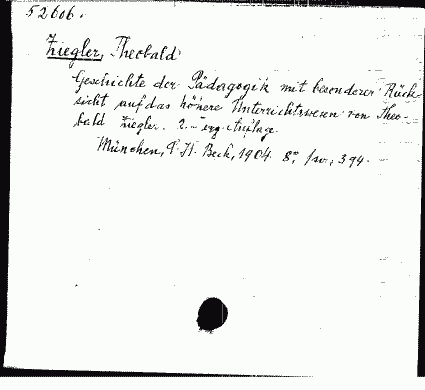 52606.
Ziegler, Theobald
Geschichte der Pädagogik mit besonderer Rück
sicht auf das höhere Unterrichtswesen von Theo-
bald Ziegler. 2. erg. Auflage.
München, C. H. Beck, 1904. 8°, 394.